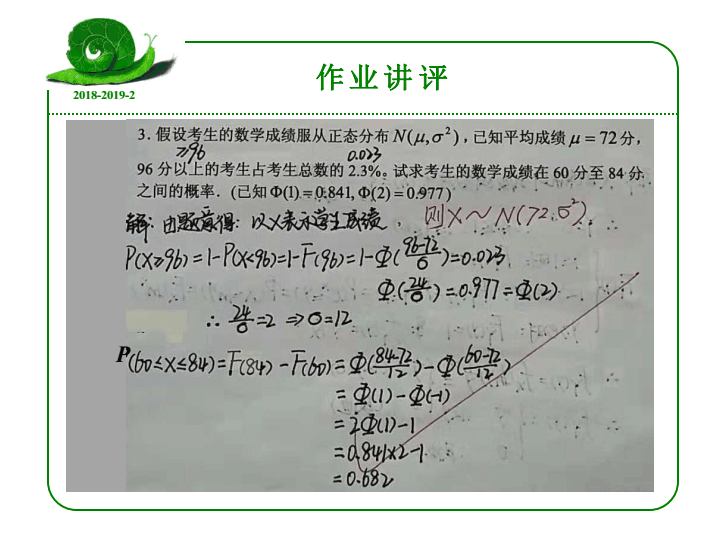 作业讲评
2018-2019-2
3. 假设考生的数学成绩服从正态分布 N(μ,σ²)，已知平均成绩 μ = 72 分，
≥96 0.023
96 分以上的考生占考生总数的 2.3%。试求考生的数学成绩在 60 分至 84 分
之间的概率．(已知 Φ(1) = 0.841, Φ(2) = 0.977 )
解: 由题意得: 以X表示学生成绩, 则X～N(72,σ²).
P(X≥96)=1-P(X<96)=1-F(96)=1-Φ(96-72/σ)=0.023
Φ(24/σ)=0.977=Φ(2)
∴ 24/σ=2 ⇒σ=12
P(60≤X≤84)=F(84)-F(60)=Φ(84-72/12)-Φ(60-72/12)
=Φ(1)-Φ(-1)
=2Φ(1)-1
=0.841×2-1
=0.682